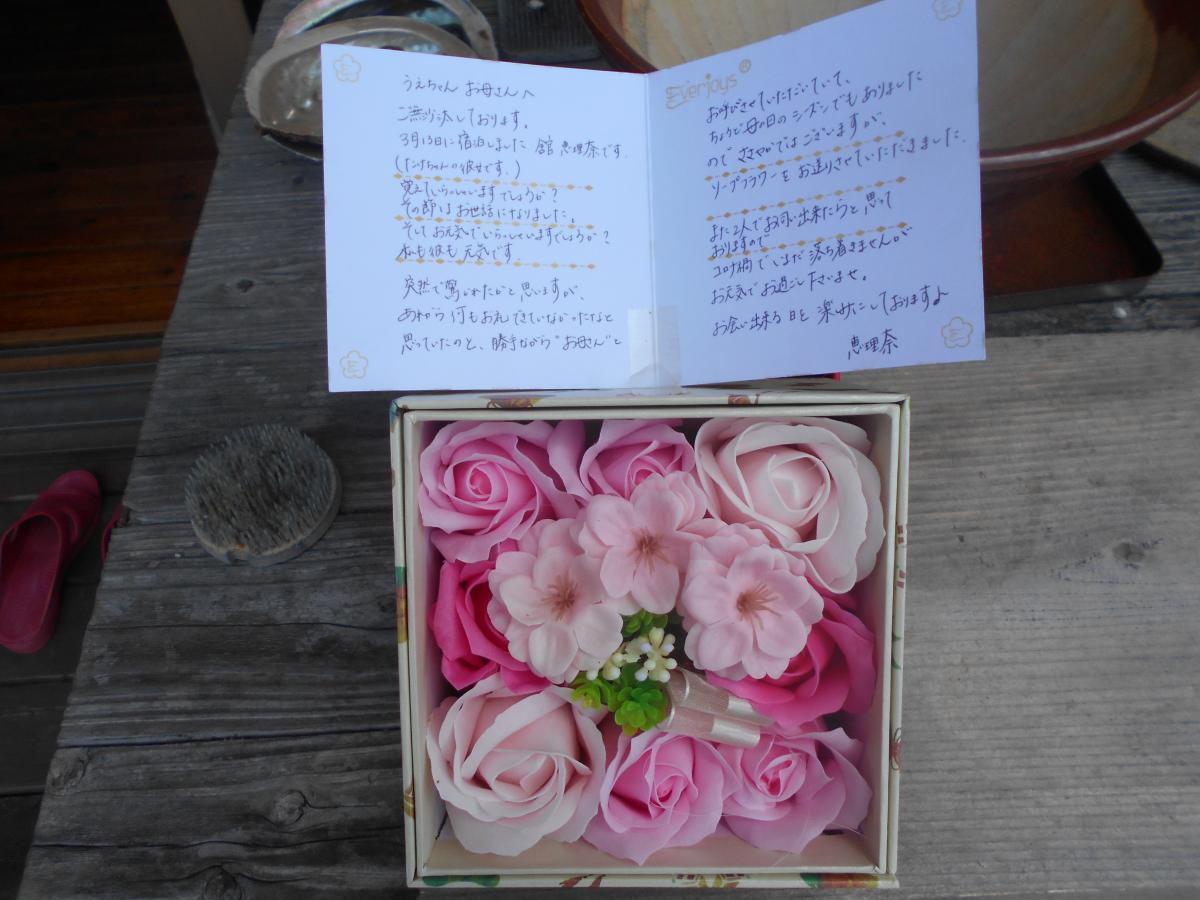 うえちゃん お母さんへ
ご無沙汰しております。
3月13日に宿泊しました 舘 恵理奈です。
(たけちゃんの彼女です。)
覚えていらっしゃいますでしょうか?
その節はお世話になりました。
そしてお元気でいらっしゃいますでしょうか?
私も彼も元気です。
突然で驚かれたかと思いますが、
あれから何もお礼できていなかったなと
思っていたのと、勝手ながら"お母さん"と
Everjoys®
お呼びさせていただいていて、
ちょうど母の日のシーズンでもありました
ので ささやかではございますが、
ソープフラワーをお送りさせていただきました。
また2人でお伺い出来たらと思って
おりますので
コロナ禍でいまだ落ち着きませんが
お元気でお過ごしくださいませ。
お会い出来る日を楽しみにしておりますよ
恵理奈